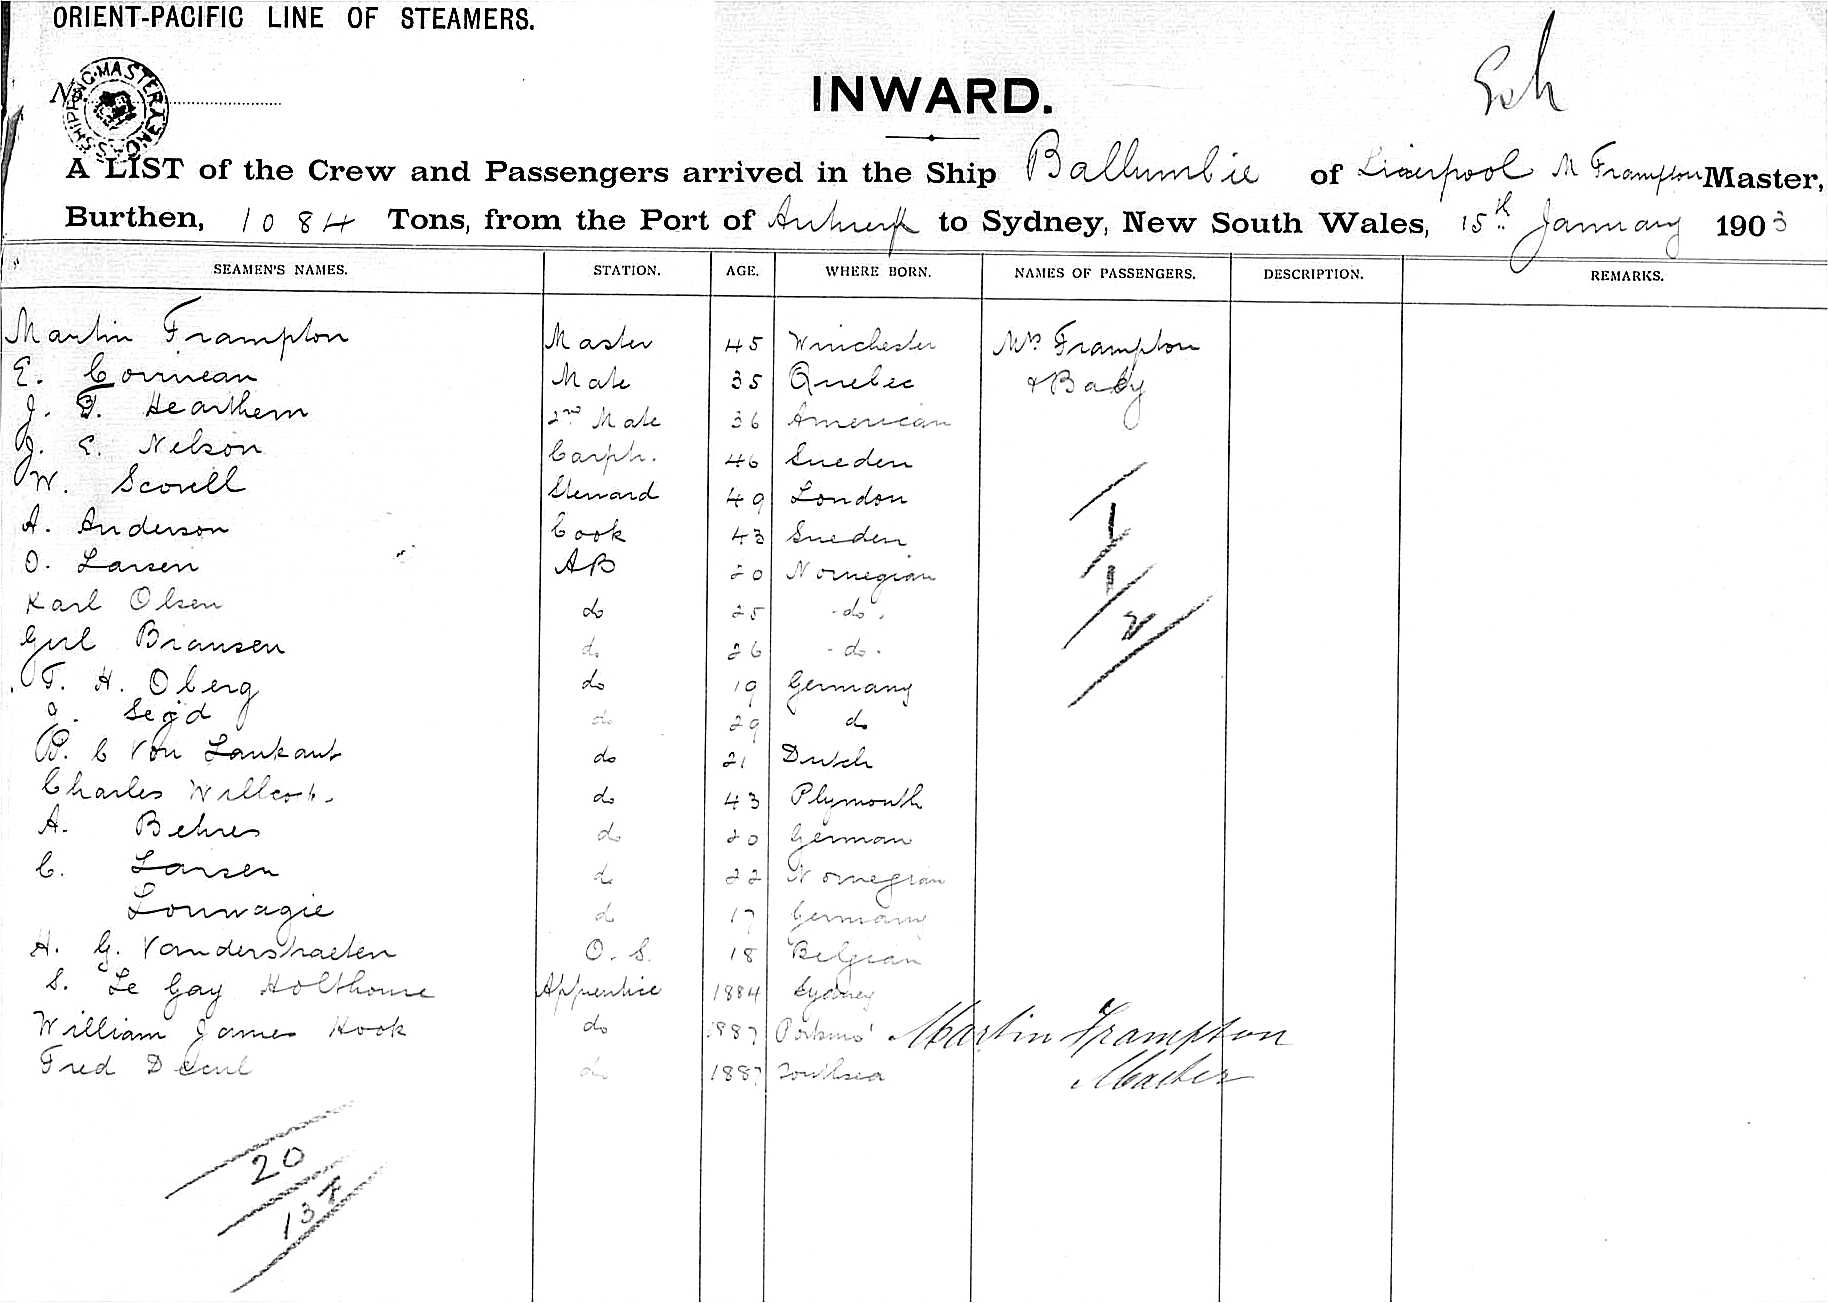 ORIENT-PACIFIC LINE OF STEAMERS.
No
SHIPPING MASTER SYDNEY
INWARD.
A LIST of the Crew and Passengers arrived in the Ship Ballumbie of Liverpool M Frampton Master,
Burthen, 1084 Tons, from the Port of Antwerp to Sydney, New South Wales, 15th January 1903
SEAMEN'S NAMES. STATION. AGE. WHERE BORN. NAMES OF PASSENGERS. DESCRIPTION. REMARKS.
Martin Frampton Master 45 Winchester Mrs Frampton
E. Corniean Mate 35 Quebec & Baby
J. F. Hearthern 2nd Mate 36 American
J. E. Nelson Carptr. 46 Sueden
W. Scovell Steward 49 London
A. Anderson Cook 43 Sueden
O. Larsen AB 20 Norwegian
Karl Olsen do 25 -do.
Bransen do 26 -do-
T. H. Oberg do 19 Germany
do 29 do
B. C Von Lankaut do 21 Dutch
Charles Willcox. do 43 Plymouth
A. Behres do 20 German
C. Larsen do 22 Norwegian
Louwagie do 17 Germany
H. G. Vanderstraeten O. S. 18 Belgian
S. Le Gay Holthouse Apprentice 1884 Sydney
William James Hook do 1887 Martin Frampton
Fred do 1887 Southsea Master
1
1
2
20
13